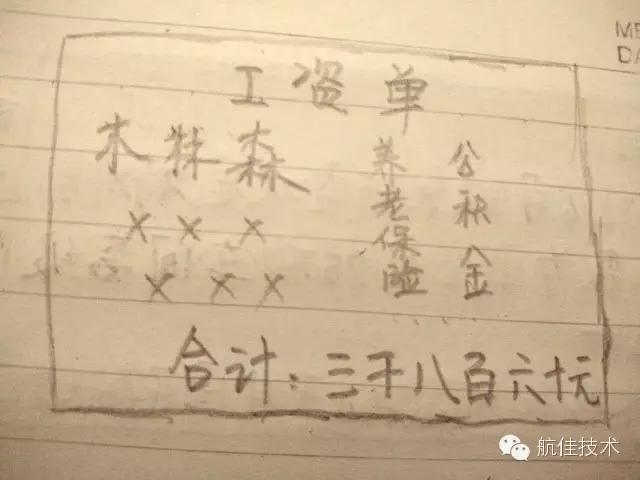 ME
DA
工资单
木林森
×××
×××
养老保险
公积金
合计：三千八百六十元
航佳技术